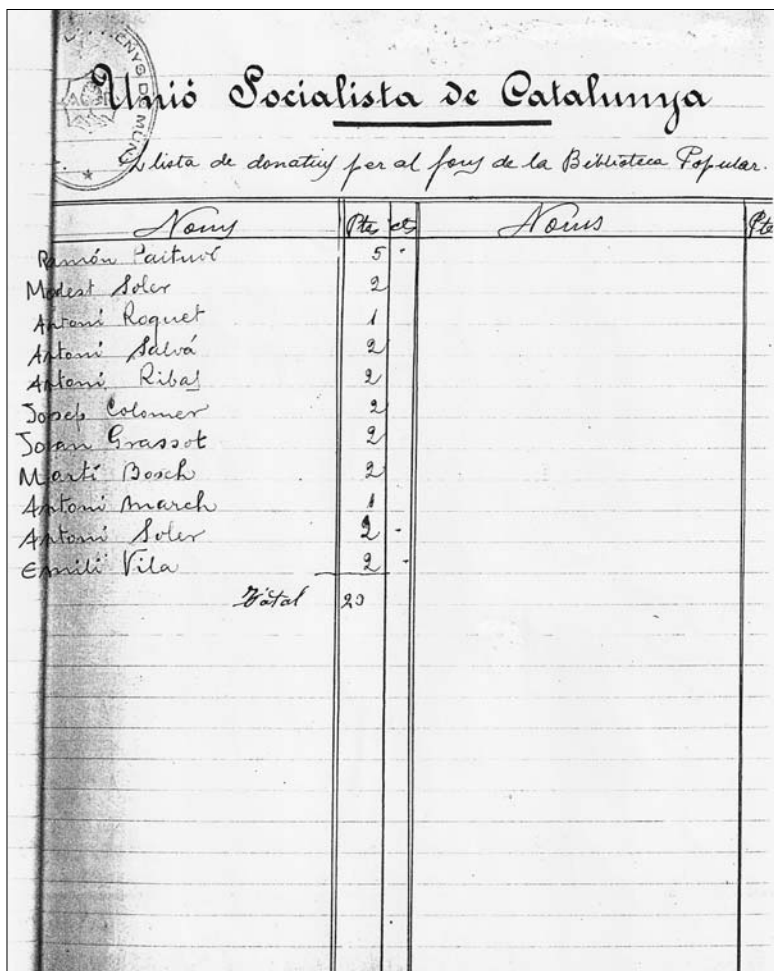 ENYS DE MUN
Unió Socialista de Catalunya
Llista de donatius per al fons de la Biblioteca Popular.
Noms Ptes cts Noms Pte
Ramón Paituví 5 -
Modest Soler 2
Antoni Roquet 1
Antoni Salvá 2
Antoni Ribas 2
Josep Colomer 2
Joan Grassot 2
Martí Bosch 2
Antoni March 1
Antoni Soler 2 -
Emili Vila 2 -
Total 23